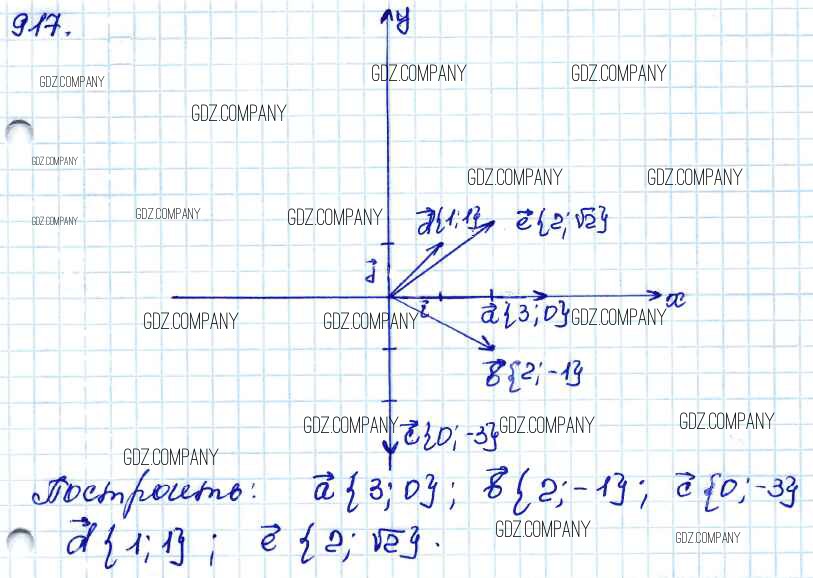 917.
y
GDZ.COMPANY GDZ.COMPANY GDZ.COMPANY
GDZ.COMPANY
GDZ.COMPANY GDZ.COMPANY GDZ.COMPANY
GDZ.COMPANY GDZ.COMPANY GDZ.COMPANY
d⃗{1;1} e⃗{2;√2}
j⃗
i⃗ x
GDZ.COMPANY GDZ.COMPANY a⃗{3;0} GDZ.COMPANY
b⃗{2;-1}
GDZ.COMPANY c⃗{0;-3} GDZ.COMPANY GDZ.COMPANY
GDZ.COMPANY
Построить: a⃗{3;0}; b⃗{2;-1}; c⃗{0;-3}
d⃗{1;1}; e⃗{2;√2}.
GDZ.COMPANY GDZ.COMPANY